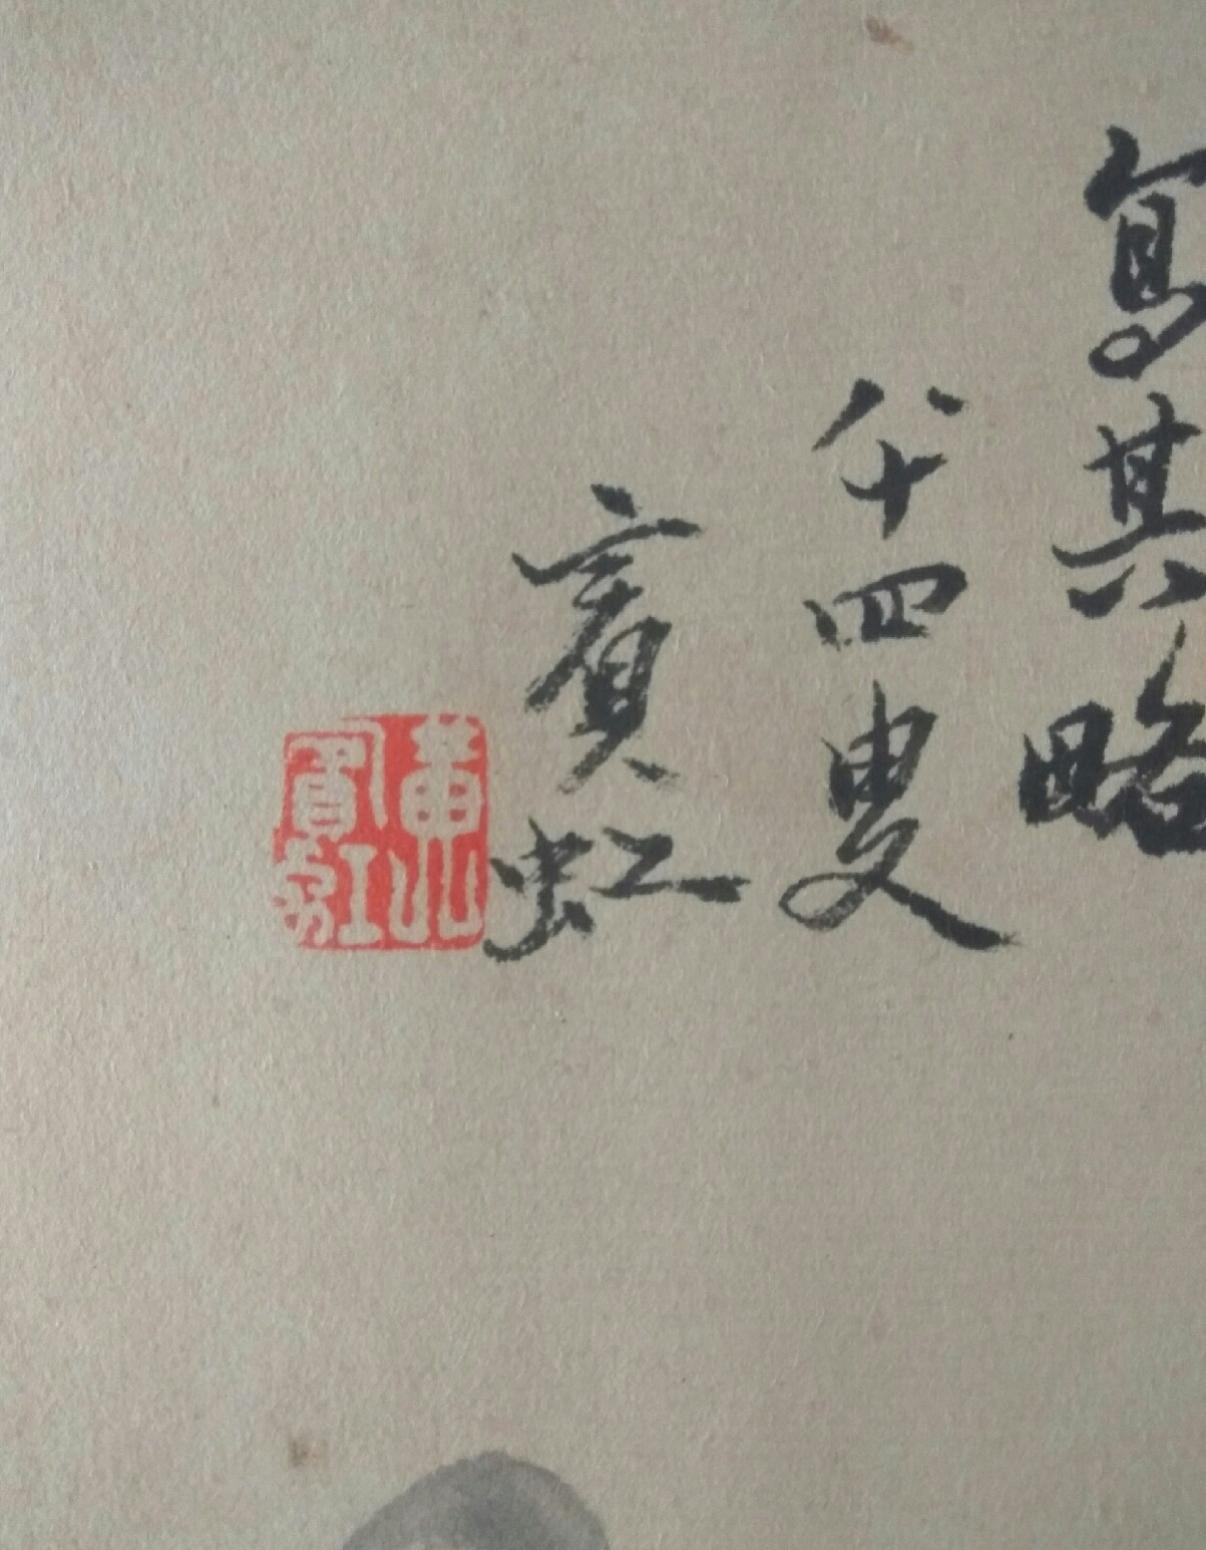 寫其略
八十四叟
賓虹
黃山
賓虹